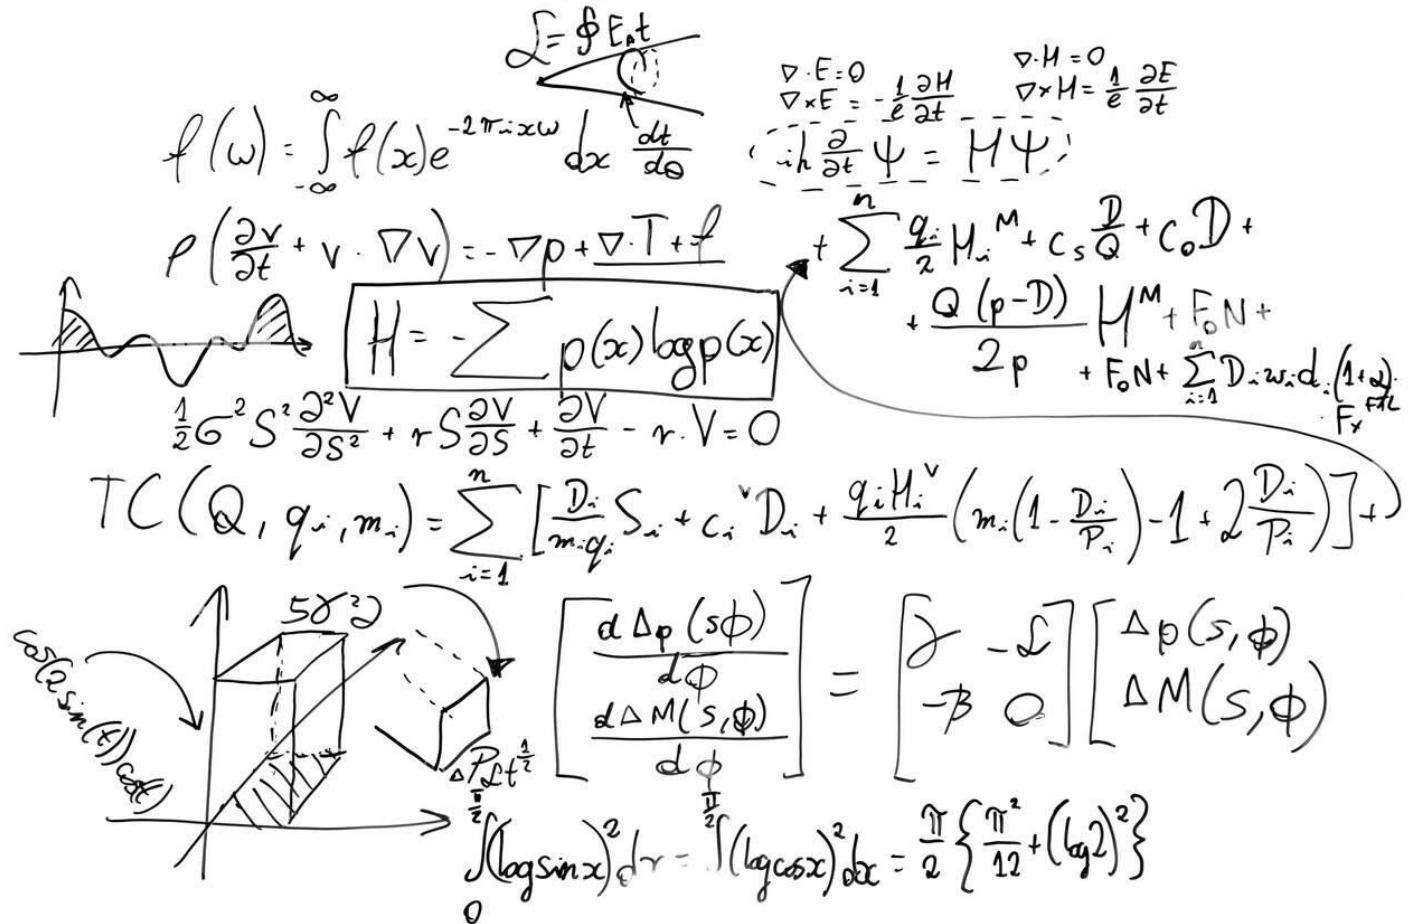 ℒ = ∮ E₀t
∇·E=0
∇·H=0
∇×E = -1/e ∂H/∂t
∇×H = 1/e ∂E/∂t
f(ω) = ∫_{-∞}^{∞} f(x)e^{-2πixω} dx
dt/dθ
iħ ∂/∂t Ψ = HΨ
ρ(∂v/∂t + v · ∇v) = -∇p + ∇·T + f
+ ∑_{i=1}^{n} q_i/2 H_i^M + c_s D/Q + c_o D +
+ Q(p-D)/2p H^M + F_o N +
+ F_o N + ∑_{i=1}^{n} D_i w_i d_i (1+α)
H = -∑ p(x) log p(x)
1/2 σ² S² ∂²V/∂S² + r S ∂V/∂S + ∂V/∂t - r · V = 0
TC(Q, q_i, m_i) = ∑_{i=1}^{n} [D_i/(m_i q_i) S_i + c_i^v D_i + q_i H_i^v/2 (m_i(1 - D_i/P_i) - 1 + 2 D_i/P_i)] +
5γ²
[dΔp(sϕ)/dϕ
dΔM(s,ϕ)/dϕ] = [γ -ℒ
-β 0] [Δp(s,ϕ)
ΔM(s,ϕ)
cos(2sin(t)) cos(t)
∫_0^{π/2} (log sin x)² dx = ∫^{π/2} (log cos x)² dx = π/2 {π²/12 + (log 2)²}